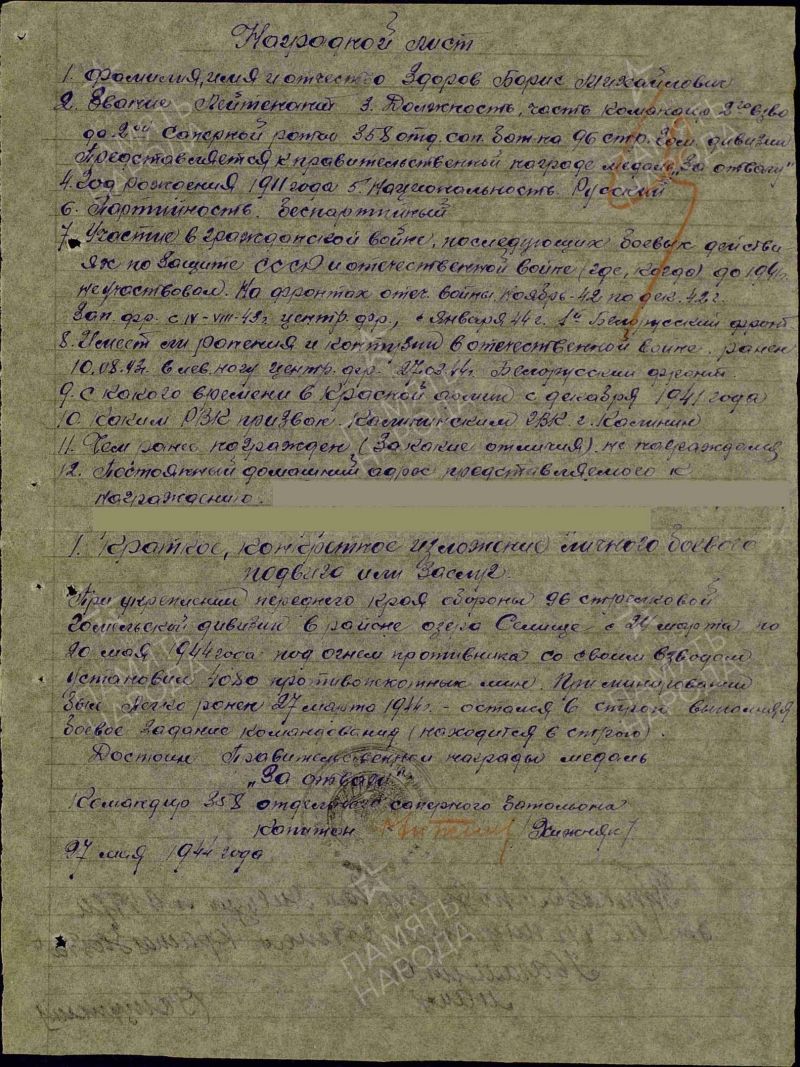 Наградной лист
1. Фамилия, имя и отчество Здоров Борис Михайлович
2. Звание Лейтенант 3. Должность, часть командир 2го взво
да 2ой саперной роты 358 отд. сап. бат-на 96 стр. Гом. дивизии
Представляется к правительственной награде медаль „За отвагу"
4. Год рождения 1911 года 5. Национальность. Русский
6. Партийность. Беспартийный
7. Участие в гражданской войне, последующих боевых действи-
ях по защите СССР и отечественной войне (где, когда) до 1941г.
не участвовал. На фронтах отеч. войны ноябрь-42 по дек. 42 г.
Зап. фр. с IV-VIII-43г. центр. фр., с января 44 г. 1й Белорусский фронт
8. Имеет ли ранения и контузии в отечественной войне. ранен
10.08.43г. в лев. ногу центр. фр. 27.03.44г. Белорусский фронт.
9. С какого времени в Красной армии с декабря 1941 года
10. Каким РВК призван Калининским ГВК г. Калинин
11. Чем ранее награжден (за какие отличия). не награждался
12. Постоянный домашний адрес представляемого к
награждению.
1. Краткое, конкретное изложение личного боевого
подвига или заслуг.
При укреплении переднего края обороны 96 стрелковой
Гомельской дивизии в районе озера Селище с 24 марта по
20 мая 1944 года под огнем противника со своим взводом
установил 4080 противопехотных мин. При минировании
был легко ранен 27 марта 1944г. - остался в строю выполняя
боевое задание командования (находится в строю).
Достоин Правительственной награды медаль
„За отвагу"
Командир 358 отдельного саперного батальона
капитан /Хижняк/
27 мая 1944 года
ПАМЯТЬ
НАРОДА